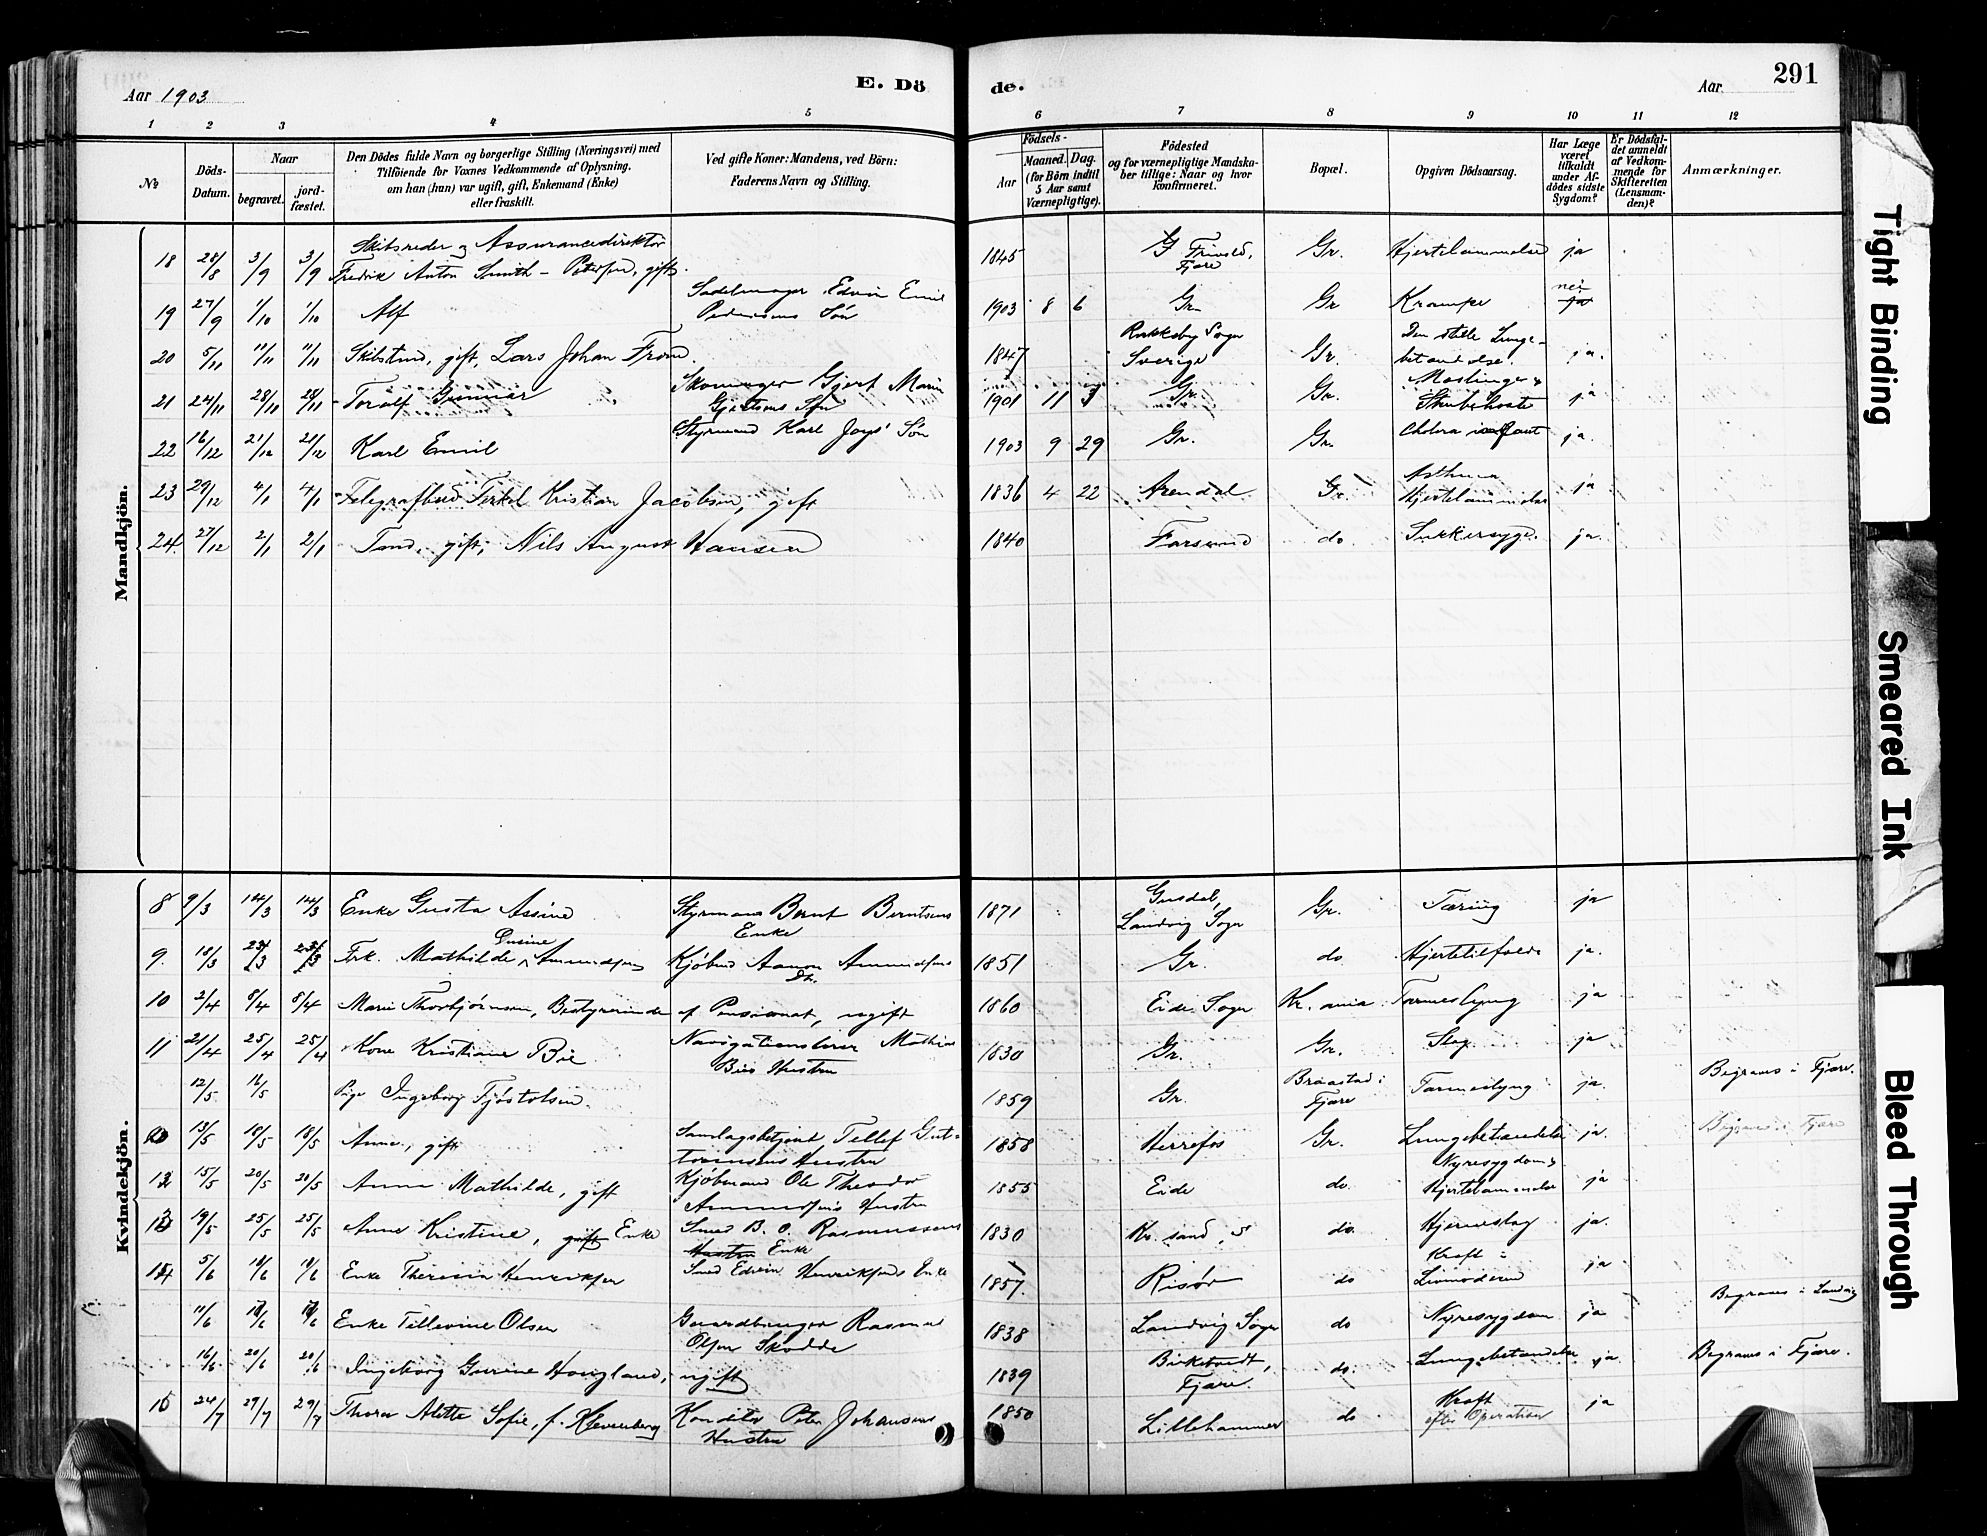 Aar 1903
E. Dö
de.
Aar
291
1 2 3 4 5 6 7 8 9 10 11 12
No
Döds-Datum.
Naar
begravet.
jord-fæstet.
Den Dödes fulde Navn og borgerlige Stilling (Næringsvei) med
Tilföiende for Voxnes Vedkommende af Oplysning.
om han (hun) var ugift, gift, Enkemand (Enke)
eller fraskilt.
Ved gifte Koner: Mandens, ved Börn:
Faderens Navn og Stilling.
Födsels-
Aar
Maaned. Dag.
(for Börn indtil
5 Aar samt
Værnepligtige).
Födested
og for værnepligtige Mandska-
ber tillige: Naar og hvor
konfirmeret.
Bopæl.
Opgiven Dödsaarsag.
Har Læge
været
tilkaldt
under Af-
dödes sidste
Sygdom?
Er Dödsfal-
det anmeldt
af Vedkom-
mende for
Skifteretten
(Lensman-
den)?
Anmærkninger.
Mandkjön.
18 28/8 3/9 3/9 Skibsreder og Assurancedirektör
Fredrik Anton Smith-Petersen, gift. 1845 Frivold, Fjære Gr. Hjertelammelse ja
19 27/9 1/10 1/10 Alf Sadelmager Edvin Emil
Pedersens Sön 1903 8 6 Gr. Gr Krampe nei ja
20 5/11 11/11 11/11 Skibstmd, gift, Lars Johan From. 1847 Sogn
Sverige Gr. Den stille Lunge-
betændelse. ja.
21 24/11 28/11 28/11 Toralf Gunnar Skomager Gjert Marin
Gjertsens Sön 1901 11 3 Gr. Gr. Mæslinger &
Strubehoste ja
22 16/12 21/12 21/12 Karl Emil Styrmand Karl Joys' Sön 1903 9 29 Gr. Gr. Cholera infant ja.
23 29/12 4/1 4/1 Telegrafbud Terkel Kristian Jacobsen, gift 1836 4 22 Arendal. Gr. Asthma
Hjertelammelse ja
24. 27/12 2/1 2/1 Tömd. gift, Nils August Hansen 1840 Farsund do. Sukkersyge. ja.
Kvindekjön.
8 9/3 14/3 14/3 Enke Gusta Assine Styrmand Bernt Berntsens
Enke 1871 Gusdal,
Landvig Sogn Gr. Tæring ja
9. 18/3 23/3 23/3 Frk. Mathilde Gusine Amundsen Kjöbmd Aanon Amundsens
Dt. 1851 Gr. do Hjertetilfælde ja.
10 2/4 8/4 8/4 Marie Thorbjörnsen, Bestyrerinde af Pensionat, ugift 1860 Eide Sogn Kr. ania Tarmeslyng ja
11 21/4 25/4 25/4 Kone Kristiane Bie Navigationslærer Mathias
Bies Hustru 1830 Gr. Gr. Slag ja
12/5 16/5 Pige Ingeborg Fjöstolsen. 1859 Gr. Braastad i
Fjære Tarmeslyng ja. Begraves i Fjære.
13/5 18/5 18/5 Anne, gift Samlagsbetjent Tellef Gut-
tormsens Hustru 1858 Herrefos Gr. Lungebetændelse ja. Begraves i Fjære
12 15/5 20/5 20/5 Anna Mathilde, gift Kjöbmand Ole Theodor
Amundsens Hustru 1855 Eide do. Nyresygdom &
Hjertelammelse ja
13 19/5 25/5 25/5 Anne Kristine, gift Enke Smed B. O. Rasmussens
Hustru Enke 1830 Kr. sand. S do. Hjerneslag ja.
14 5/6 10/6 10/6 Enke Theresia Henriksen Smed Edvin Henriksens Enke 1857. Risör do Kræft i
Livmoderen ja
11/6 Enke Tellevine Olsen Gaardbruger Rasmus
Olsen Skodde 1838 Landvig Sogn do Nyresygdom ja Begraves i Landvig
16/6 20/6 20/6 Ingeborg Gurine Hougland, ugift 1839 Birketvedt,
Fjære. do. Lungebetændelse ja Begraves i Fjære.
15 24/7 29/7 29/7 Thora Alette Sofie, f. Klevenberg Konditor Peter Johansens
Hustru 1850 Lillehammer do Kræft
efter Operation ja
Tight Binding
Smeared Ink
Bleed Through